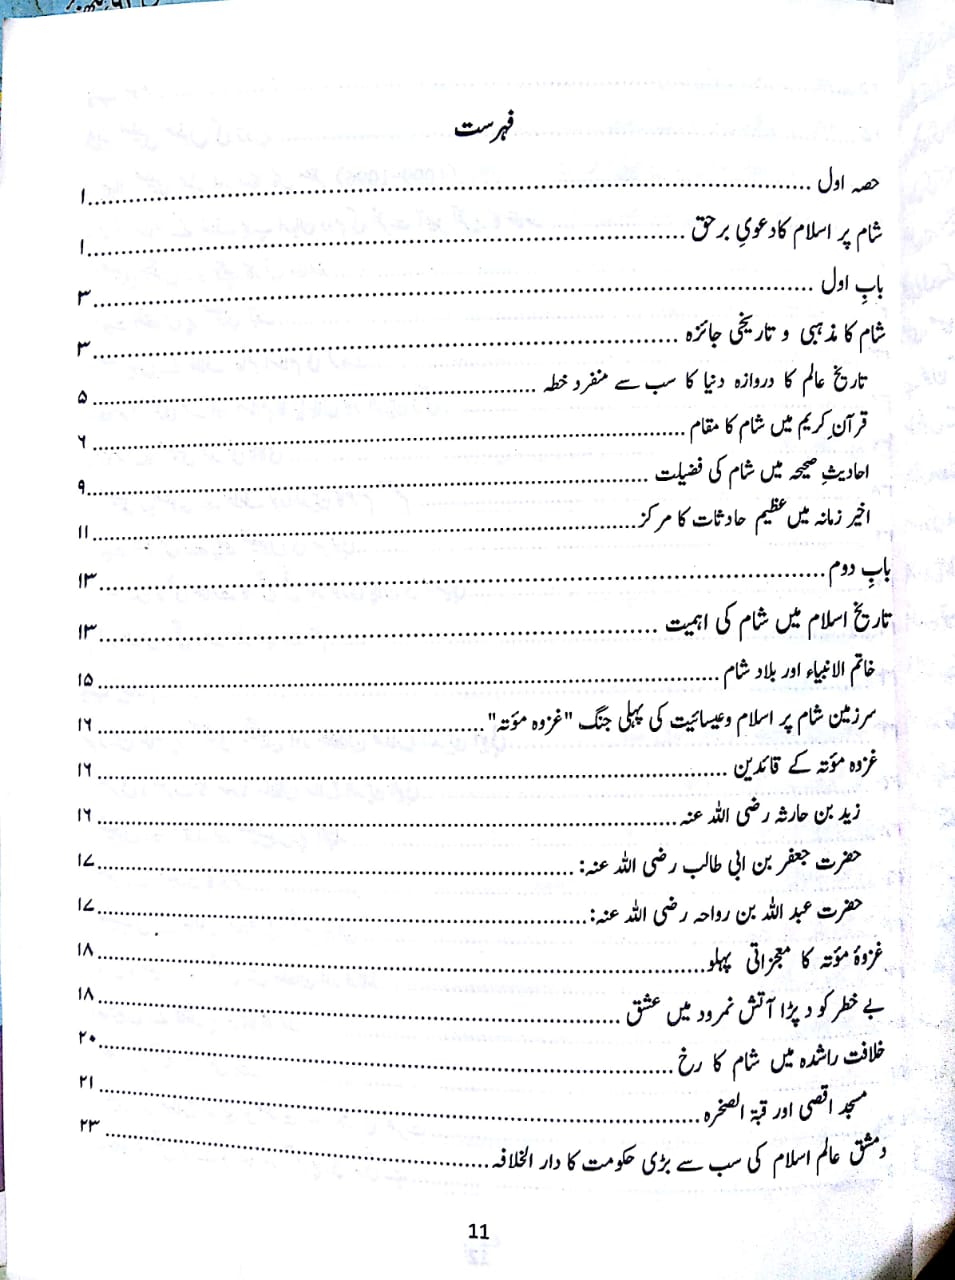 فہرست
حصہ اول ........ ۱
شام پر اسلام کا دعویِ برحق ........ ۱
بابِ اول ........ ۳
شام کا مذہبی و تاریخی جائزہ ........ ۳
تاریخ عالم کا دروازہ دنیا کا سب سے منفرد خطہ ........ ۵
قرآنِ کریم میں شام کا مقام ........ ۶
احادیثِ صحیحہ میں شام کی فضیلت ........ ۹
اخیر زمانہ میں عظیم حادثات کا مرکز ........ ۱۱
بابِ دوم ........ ۱۳
تاریخ اسلام میں شام کی اہمیت ........ ۱۳
خاتم الانبیاء اور بلاد شام ........ ۱۵
سرزمین شام پر اسلام و عیسائیت کی پہلی جنگ "غزوہ مؤتہ" ........ ۱۶
غزوہ مؤتہ کے قائدین ........ ۱۶
زید بن حارثہ رضی اللہ عنہ ........ ۱۶
حضرت جعفر بن ابی طالب رضی اللہ عنہ: ........ ۱۷
حضرت عبد اللہ بن رواحہ رضی اللہ عنہ: ........ ۱۷
غزوۂ مؤتہ کا معجزاتی پہلو ........ ۱۸
بے خطر کود پڑا آتش نمرود میں عشق ........ ۱۸
خلافت راشدہ میں شام کا رخ ........ ۲۰
مسجد اقصی اور قبۃ الصخرہ ........ ۲۱
دمشق عالم اسلام کی سب سے بڑی حکومت کا دار الخلافہ ........ ۲۳
11